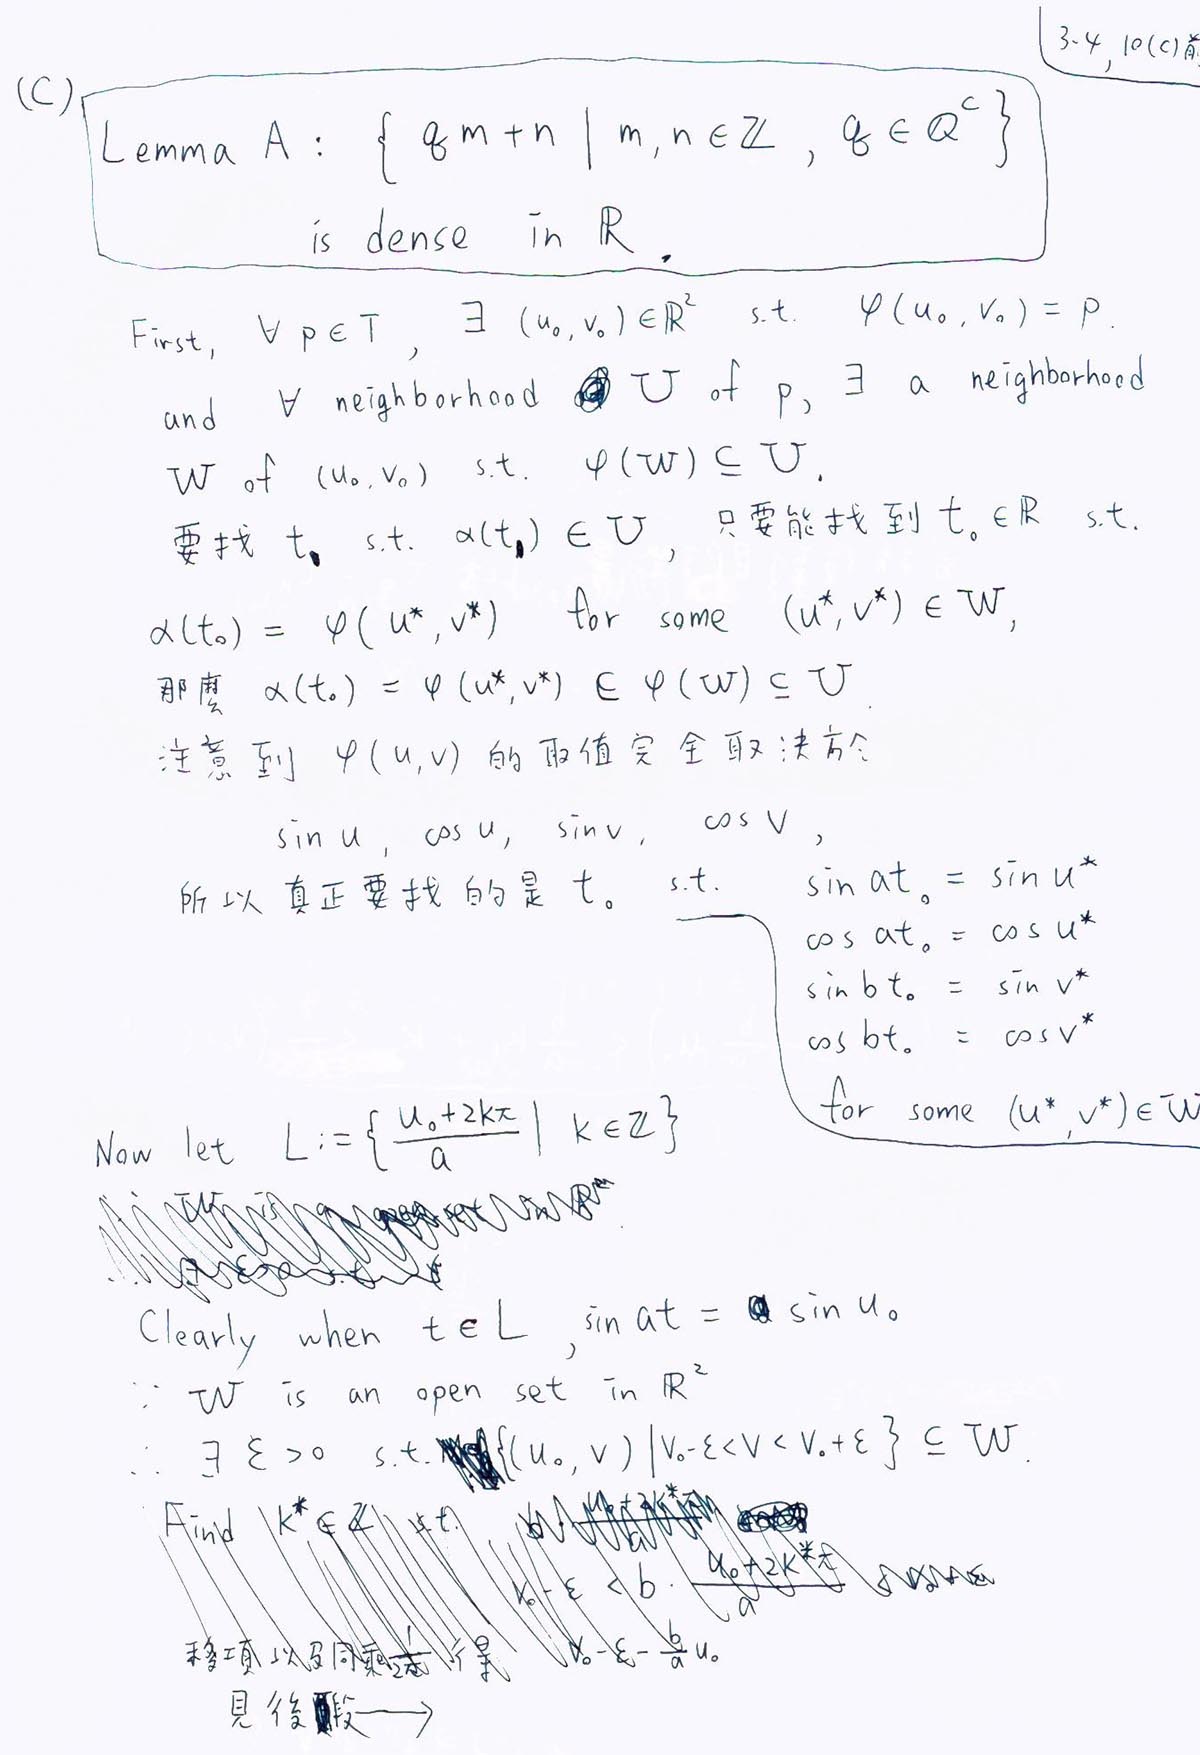 3-4, 10(c)前
(C)
Lemma A : { qm+n | m, n ∈ ℤ , q ∈ ℚ^c }
is dense in ℝ.
First, ∀ p ∈ T, ∃ (u₀, v₀) ∈ ℝ² s.t. φ(u₀, v₀) = p.
and ∀ neighborhood U of p, ∃ a neighborhood
W of (u₀, v₀) s.t. φ(W) ⊆ U.
要找 t₀ s.t. α(t₀) ∈ U, 只要能找到 t₀ ∈ ℝ s.t.
α(t₀) = φ(u*, v*) for some (u*, v*) ∈ W,
那麼 α(t₀) = φ(u*, v*) ∈ φ(W) ⊆ U.
注意到 φ(u, v) 的取值完全取決於
sin u, cos u, sin v, cos v,
所以真正要找的是 t₀ s.t.
sin at₀ = sin u*
cos at₀ = cos u*
sin bt₀ = sin v*
cos bt₀ = cos v*
for some (u*, v*) ∈ W
Now let L := { (u₀+2kπ)/a | k ∈ ℤ }
Clearly when t ∈ L, sin at = sin u₀
∵ W is an open set in ℝ²
∴ ∃ ε > 0 s.t. {(u₀, v) | v₀-ε < v < v₀+ε } ⊆ W.
Find k* ∈ ℤ s.t.
v₀-ε < b · (u₀+2k*π)/a
移項以及同乘 1/2π 得 v₀-ε-(b/a)u₀
見後段 →